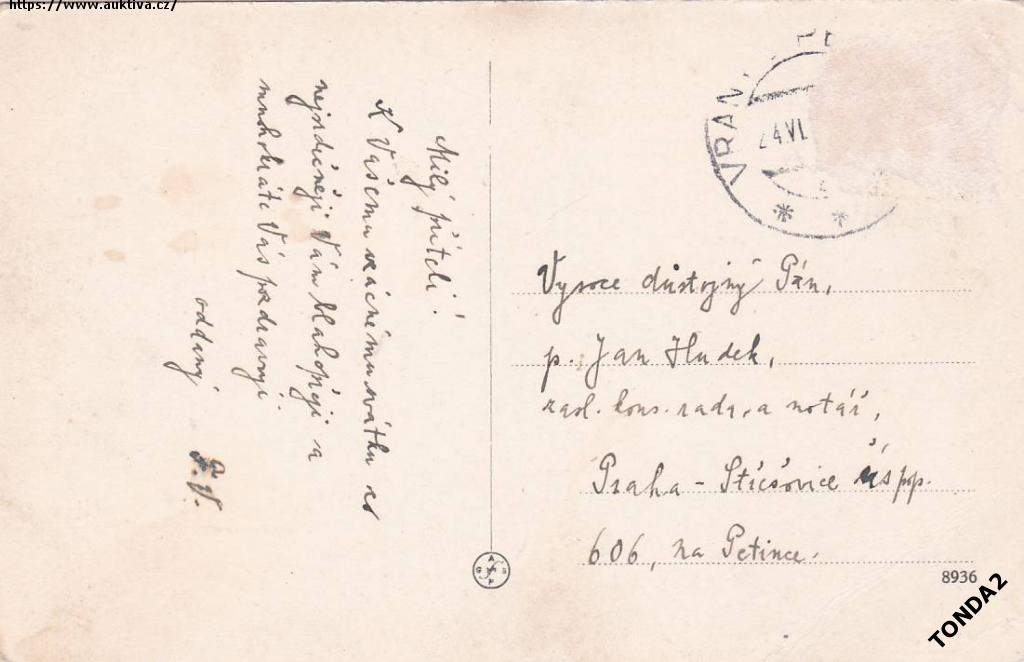 https://www.auktiva.cz/
Milý příteli!
K Vašemu vzácnému svátku co
nejsrdečněji Vám blahopřeji a
mnohokráte Vás pozdravuji
oddaný
F. V.
VRAN
24 VI
Vysoce důstojný Pán,
p. Jan Hudek,
kons. rada, a notář,
Praha - Střešovice čp.
606, na Petince.
8936
TONDA2